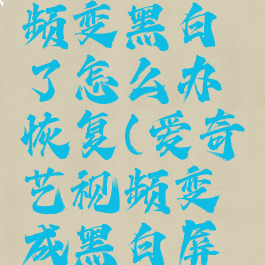 频变黑白
了怎么办
恢复(爱奇
艺视频变
成黑白屏